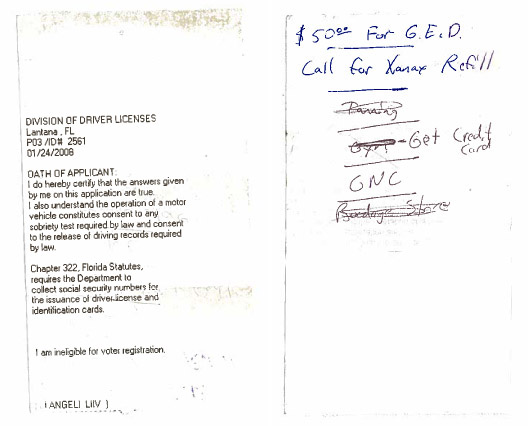 DIVISION OF DRIVER LICENSES
Lantana , FL
P03 /ID# 2561
01/24/2008
OATH OF APPLICANT:
I do hereby certify that the answers given
by me on this application are true.
I also understand the operation of a motor
vehicle constitutes consent to any
sobriety test required by law and consent
to the release of driving records required
by law.
Chapter 322, Florida Statutes,
requires the Department to
collect social security numbers for
the issuance of driver license and
identification cards.
I am ineligible for voter registration.
( ANGELI LIIV )
$50.00 For G.E.D.
Call for Xanax Refill
Tanning
Gym - Get Credit
Card
GNC